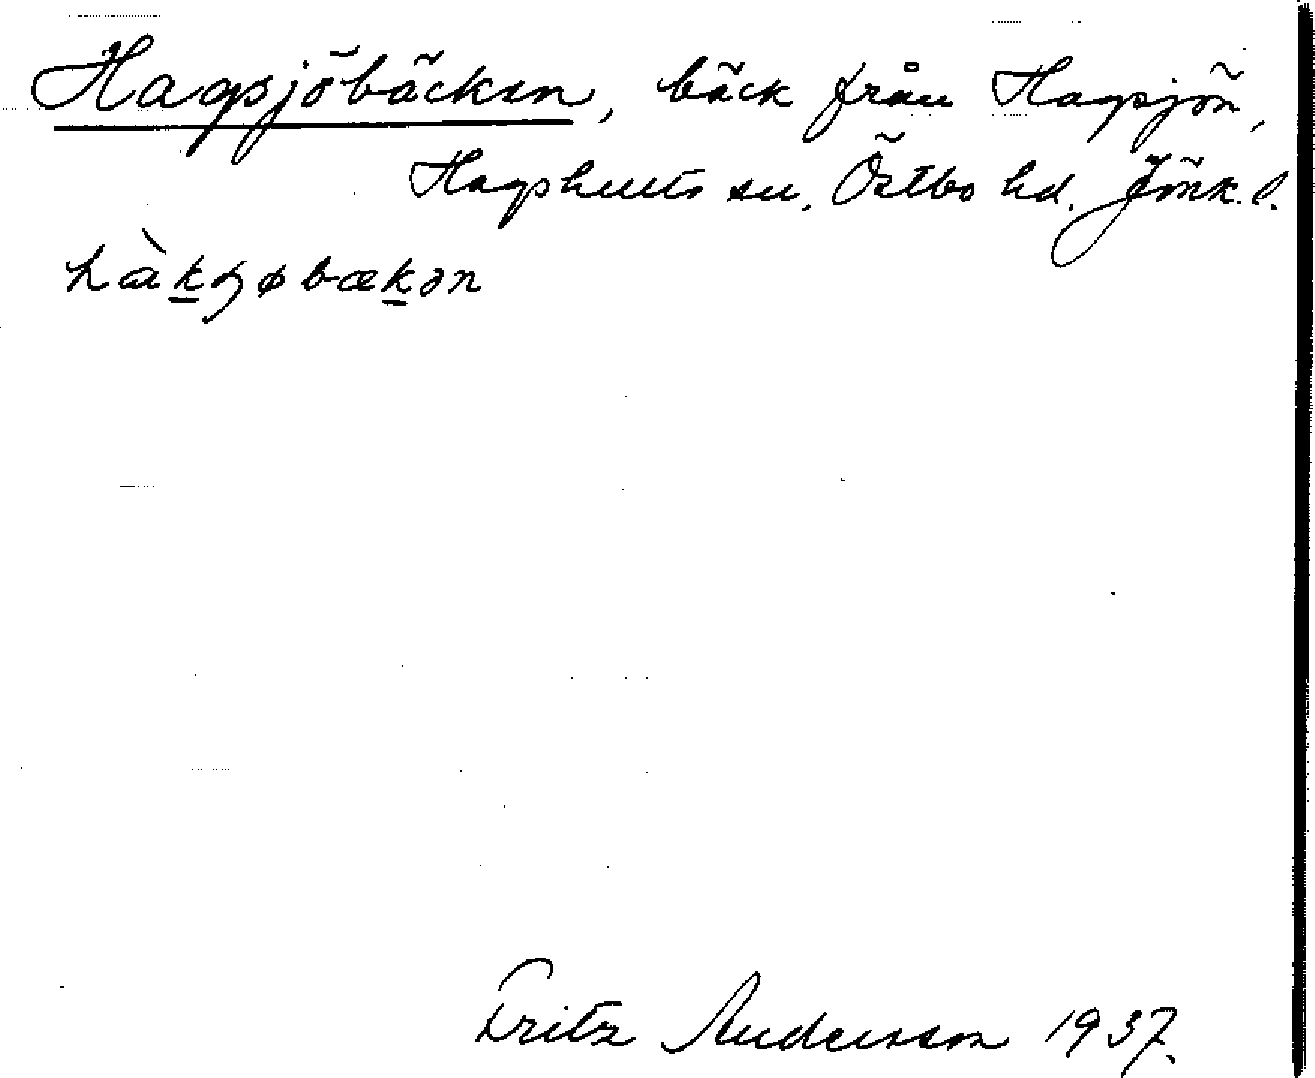 Hagsjöbäcken, bäck från Hagsjön,
Hagshults sn, Östbo hd. Jönk. l.
hàkʒøbækən
Fritz Andersson 1937.